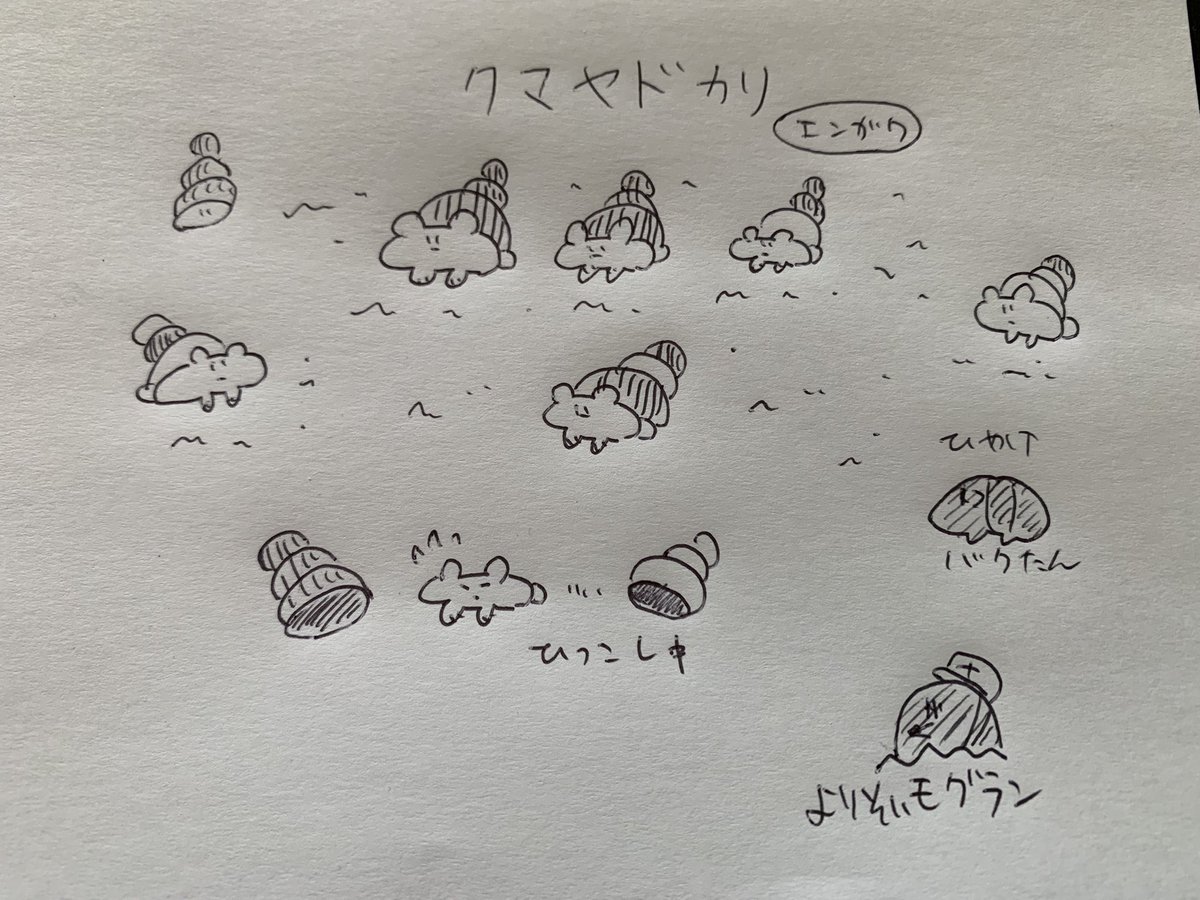 クマヤドカリ
エンガワ
ひかげ
バクたん
ひっこし中
よりそいモグラン